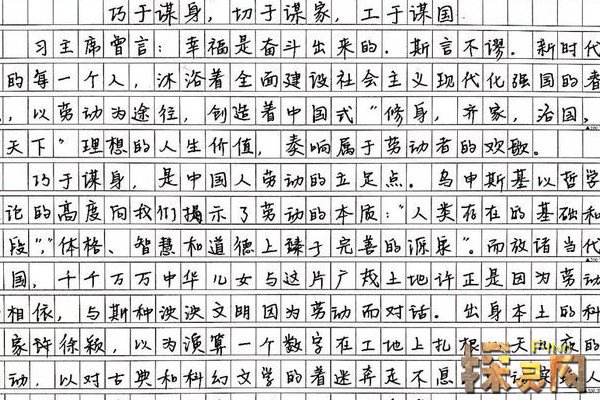 巧于谋身，切于谋家，工于谋国
习主席曾言：幸福是奋斗出来的．斯言不谬．新时代
的每一个人，沐浴着全面建设社会主义现代化强国的春
，以劳动为途径，创造着中国式“修身，齐家，治国，
天下”理想的人生价值，奏响属于劳动者的欢歌。
巧于谋身，是中国人劳动的立足点。乌申斯基以哲学
论的高度向我们揭示了劳动的本质：“人类存在的基础和
段”，“体格、智慧和道德上臻于完善的源泉”。而放诸当代
国，千千万万中华儿女与这片广茂土地许正是因为劳动
相依，与斯种泱泱文明因为劳动而对话。出身本土的科
家许徐颖，以为演算一个数字在工地上扎根 天 夜的
动，以对古典和科幻文学的着迷奔走不息 读 人
探灵网